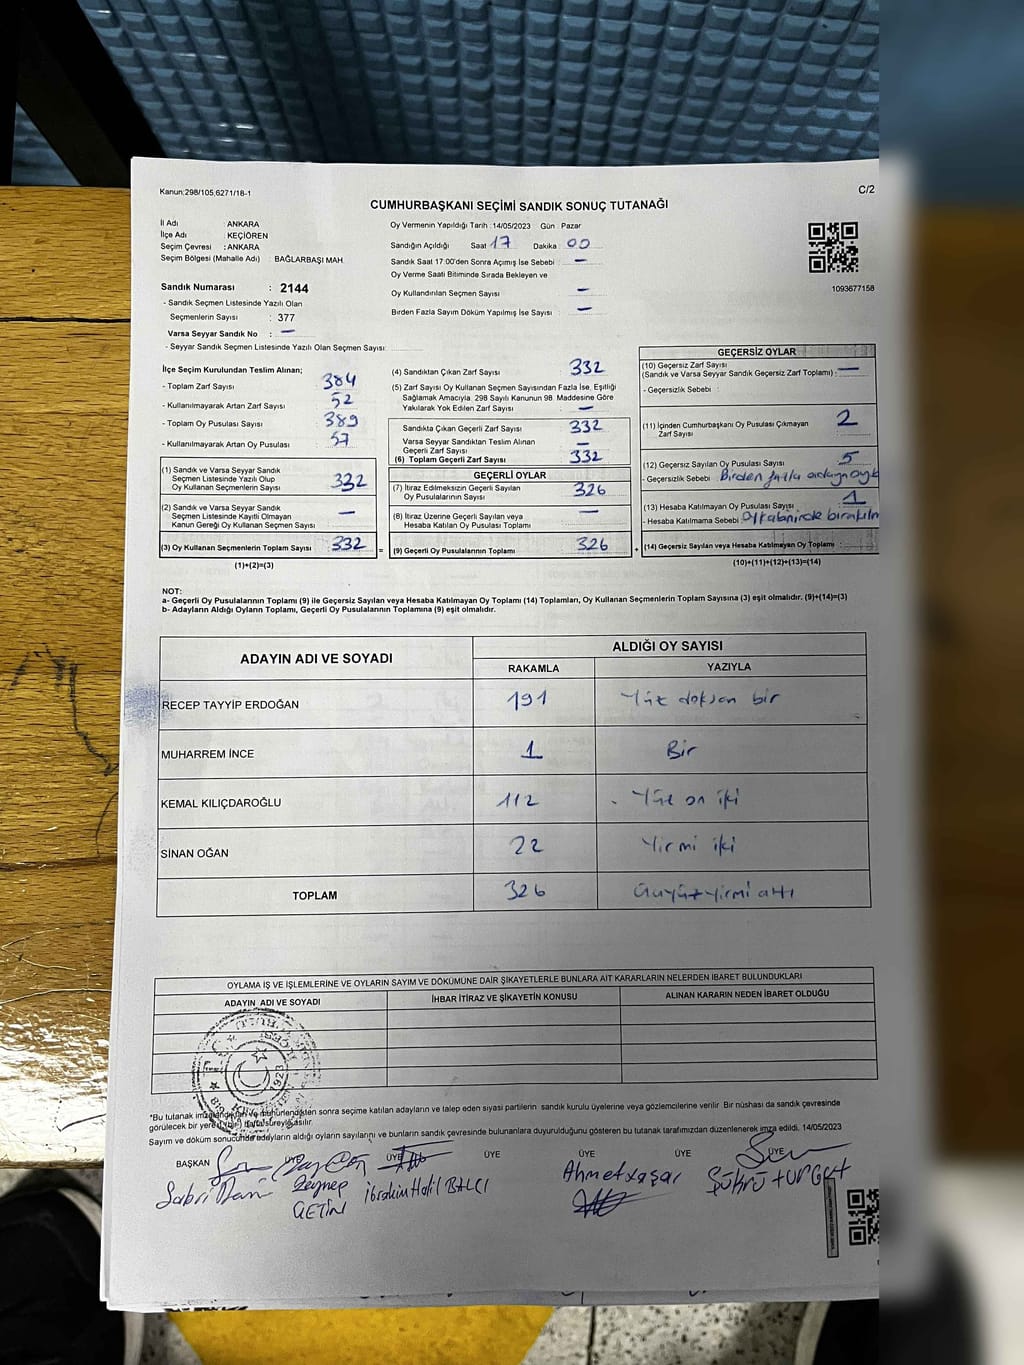 Kanun;298/105,6271/18-1
C/2
CUMHURBAŞKANI SEÇİMİ SANDIK SONUÇ TUTANAĞI
İl Adı : ANKARA
İlçe Adı : KEÇİÖREN
Seçim Çevresi : ANKARA
Seçim Bölgesi (Mahalle Adı) : BAĞLARBAŞI MAH.
Sandık Numarası : 2144
- Sandık Seçmen Listesinde Yazılı Olan
Seçmenlerin Sayısı : 377
Varsa Seyyar Sandık No : —
- Seyyar Sandık Seçmen Listesinde Yazılı Olan Seçmen Sayısı:
Oy Vermenin Yapıldığı Tarih :14/05/2023 Gün : Pazar
Sandığın Açıldığı Saat 17 Dakika : 00
Sandık Saat 17:00'den Sonra Açımış İse Sebebi : —
Oy Verme Saati Bitiminde Sırada Bekleyen ve
Oy Kullandırılan Seçmen Sayısı : —
Birden Fazla Sayım Döküm Yapılmış İse Sayısı : —
1093677158
İlçe Seçim Kurulundan Teslim Alınan;
- Toplam Zarf Sayısı : 384
- Kullanılmayarak Artan Zarf Sayısı : 52
- Toplam Oy Pusulası Sayısı : 389
- Kullanılmayarak Artan Oy Pusulası : 57
(1) Sandık ve Varsa Seyyar Sandık
Seçmen Listesinde Yazılı Olup
Oy Kullanan Seçmenlerin Sayısı : 332
(2) Sandık ve Varsa Seyyar Sandık
Seçmen Listesinde Kayıtlı Olmayan
Kanun Gereği Oy Kullanan Seçmen Sayısı : —
(3) Oy Kullanan Seçmenlerin Toplam Sayısı : 332 =
(1)+(2)=(3)
(4) Sandıktan Çıkan Zarf Sayısı : 332
(5) Zarf Sayısı Oy Kullanan Seçmen Sayısından Fazla İse, Eşitliği
Sağlamak Amacıyla, 298 Sayılı Kanunun 98. Maddesine Göre
Yakılarak Yok Edilen Zarf Sayısı : —
Sandıkta Çıkan Geçerli Zarf Sayısı : 332
Varsa Seyyar Sandıktan Teslim Alınan
Geçerli Zarf Sayısı : —
(6) Toplam Geçerli Zarf Sayısı : 332
GEÇERLİ OYLAR
(7) İtiraz Edilmeksizin Geçerli Sayılan
Oy Pusulalarının Sayısı : 326
(8) İtiraz Üzerine Geçerli Sayılan veya
Hesaba Katılan Oy Pusulası Toplamı : —
(9) Geçerli Oy Pusulalarının Toplamı : 326 +
GEÇERSİZ OYLAR
(10) Geçersiz Zarf Sayısı
(Sandık ve Varsa Seyyar Sandık Geçersiz Zarf Toplamı) : —
- Geçersizlik Sebebi :
(11) İçinden Cumhurbaşkanı Oy Pusulası Çıkmayan
Zarf Sayısı : 2
(12) Geçersiz Sayılan Oy Pusulası Sayısı : 5
- Geçersizlik Sebebi : Birden fazla
(13) Hesaba Katılmayan Oy Pusulası Sayısı : 1
- Hesaba Katılmama Sebebi :
(14) Geçersiz Sayılan veya Hesaba Katılmayan Oy Toplamı :
(10)+(11)+(12)+(13)=(14)
NOT:
a- Geçerli Oy Pusulalarının Toplamı (9) ile Geçersiz Sayılan veya Hesaba Katılmayan Oy Toplamı (14) Toplamları, Oy Kullanan Seçmenlerin Toplam Sayısına (3) eşit olmalıdır. (9)+(14)=(3)
b- Adayların Aldığı Oyların Toplamı, Geçerli Oy Pusulalarının Toplamına (9) eşit olmalıdır.
ADAYIN ADI VE SOYADI ALDIĞI OY SAYISI
RAKAMLA YAZIYLA
RECEP TAYYİP ERDOĞAN 191 Yüz doksan bir
MUHARREM İNCE 1 Bir
KEMAL KILIÇDAROĞLU 112 Yüz on iki
SİNAN OĞAN 22 Yirmi iki
TOPLAM 326 üçyüzyirmi altı
OYLAMA İŞ VE İŞLEMLERİNE VE OYLARIN SAYIM VE DÖKÜMÜNE DAİR ŞİKAYETLERLE BUNLARA AİT KARARLARIN NELERDEN İBARET BULUNDUKLARI
ADAYIN ADI VE SOYADI İHBAR İTİRAZ VE ŞİKAYETİN KONUSU ALINAN KARARIN NEDEN İBARET OLDUĞU
1923
*Bu tutanak imzalandıktan ve mühürlendikten sonra seçime katılan adayların ve talep eden siyasi partilerin sandık kurulu üyelerine veya gözlemcilerine verilir. Bir nüshası da sandık çevresinde
görülecek bir yere (1 bir) hafta süreyle asılır.
Sayım ve döküm sonucunda adayların aldığı oyların sayılarını ve bunların sandık çevresinde bulunanlara duyurulduğunu gösteren bu tutanak tarafımızdan düzenlenerek imza edildi. 14/05/2023
BAŞKAN ÜYE ÜYE ÜYE ÜYE ÜYE ÜYE
Sabri Zeynep İbrahim Halil BALCI Ahmet Yaşar Şükrü TURGUT
ÇETİN